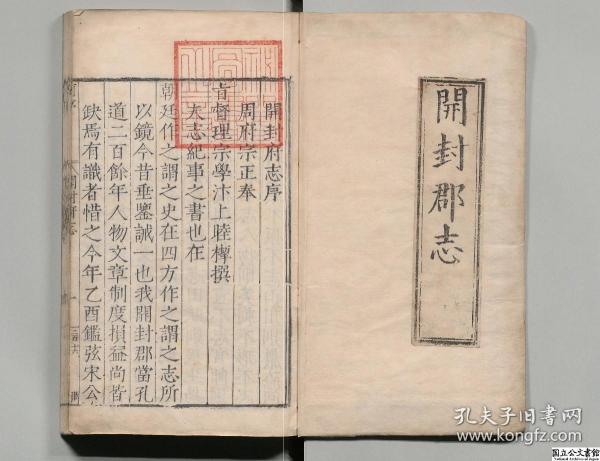 開封郡志
開封府志序
周府宗正奉
旨督理宗學汴上睦㮮撰
夫志紀事之書也在
朝廷作之謂之史在四方作之謂之志所
以鏡今昔垂鑒誡一也我開封郡當孔
道二百餘年人物文章制度損益尚皆
缺焉有識者惜之今年乙酉鑑弦宋公
孔夫子旧書网
www.kongfz.com
国立公文書館
National Archives of Japan